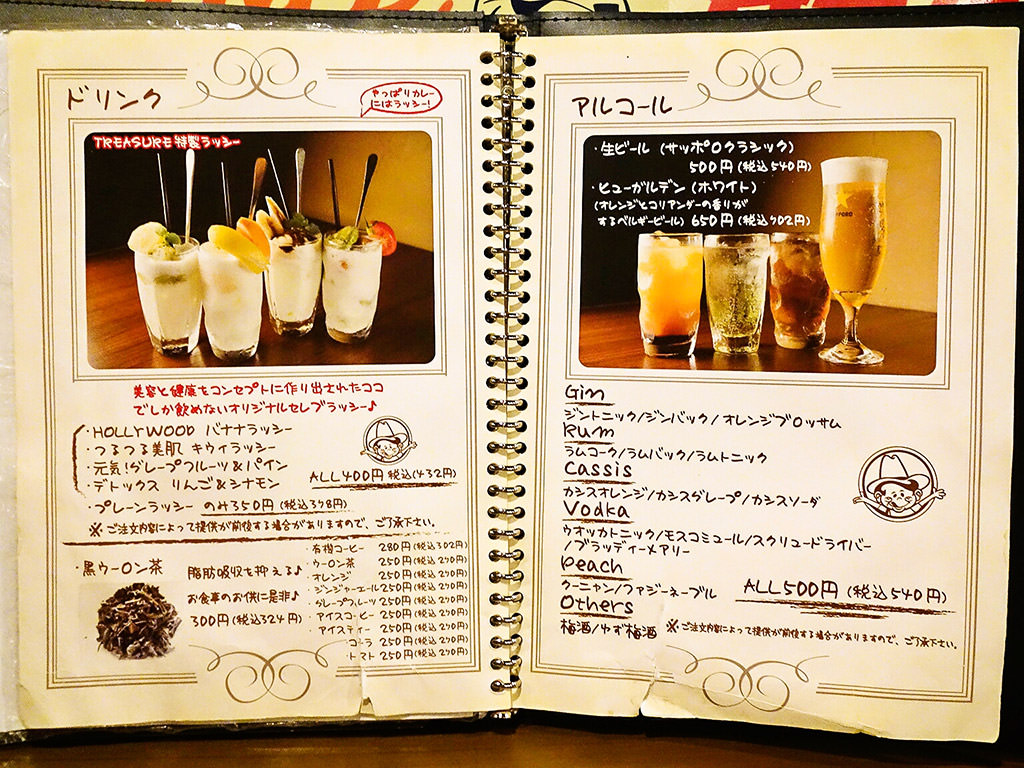 ドリンク
やっぱりカレー
にはラッシー!
TREASURE特製ラッシー
美容と健康をコンセプトに作り出されたココ
でしか飲めないオリジナルセレブラッシー♪
・HOLLYWOOD バナナラッシー
・つるつる美肌 キウイラッシー
・元気!グレープフルーツ&パイン
・デトックス りんご&シナモン
ALL400円 税込(432円)
・プレーンラッシー のみ350円(税込378円)
※ご注文内容によって提供が前後する場合がありますので、ご了承下さい。
・黒ウーロン茶 脂肪吸収を抑える♪
お食事のお供に是非♪
300円(税込324円)
・有機コーヒー 280円(税込302円)
・ウーロン茶 250円(税込270円)
・オレンジ 250円(税込270円)
・ジンジャーエール250円(税込270円)
・グレープフルーツ250円(税込270円)
・アイスコーヒー250円(税込270円)
・アイスティー 250円(税込270円)
・コーラ 250円(税込270円)
・トマト 250円(税込270円)
アルコール
・生ビール (サッポロクラシック)
500円(税込540円)
・ヒューガルデン(ホワイト)
(オレンジとコリアンダーの香りが
するベルギービール) 650円(税込702円)
Gin
ジントニック/ジンバック/オレンジブロッサム
Rum
ラムコーク/ラムバック/ラムトニック
Cassis
カシスオレンジ/カシスグレープ/カシスソーダ
Vodka
ウオッカトニック/モスコミュール/スクリュードライバー
/ブラッディーメアリー
Peach
クーニャン/ファジーネーブル
ALL500円 (税込540円)
Others
梅酒/ゆず梅酒
※ご注文内容によって提供が前後する場合がありますので、ご了承下さい。